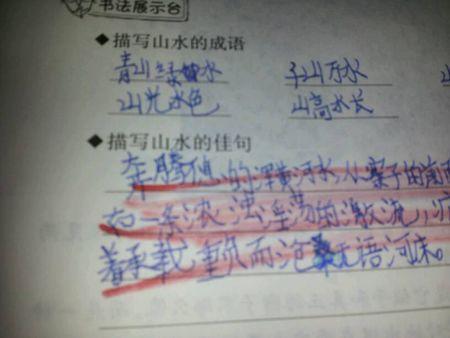 书法展示台
◆描写山水的成语
青山绿水 千山万水
山光水色 山高水长
◆描写山水的佳句
奔腾的浑黄河水,从寨子的南面
一条浓浊淫荡的激流,
着承载重负而沧桑无语河床。